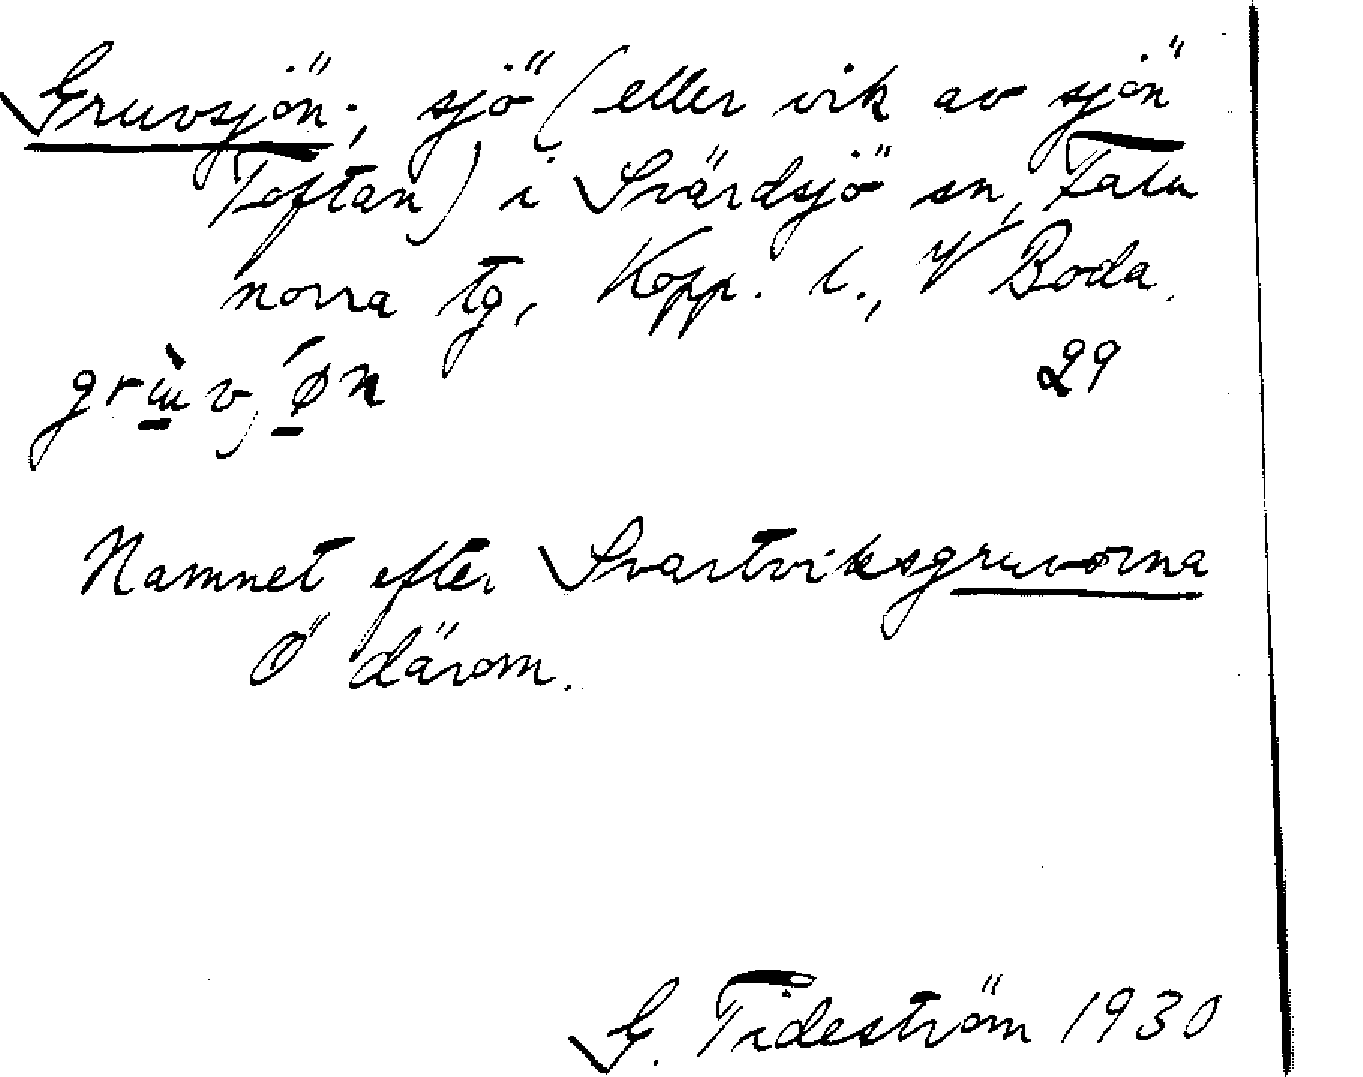 Gruvsjön, sjö (eller vik av sjön
Toftan) i Svärdsjö sn, Falu
norra tg, Kopp. l., V Boda.
29
Namnet efter Svartviksgruvorna
Ö därom.
G. Tideström 1930